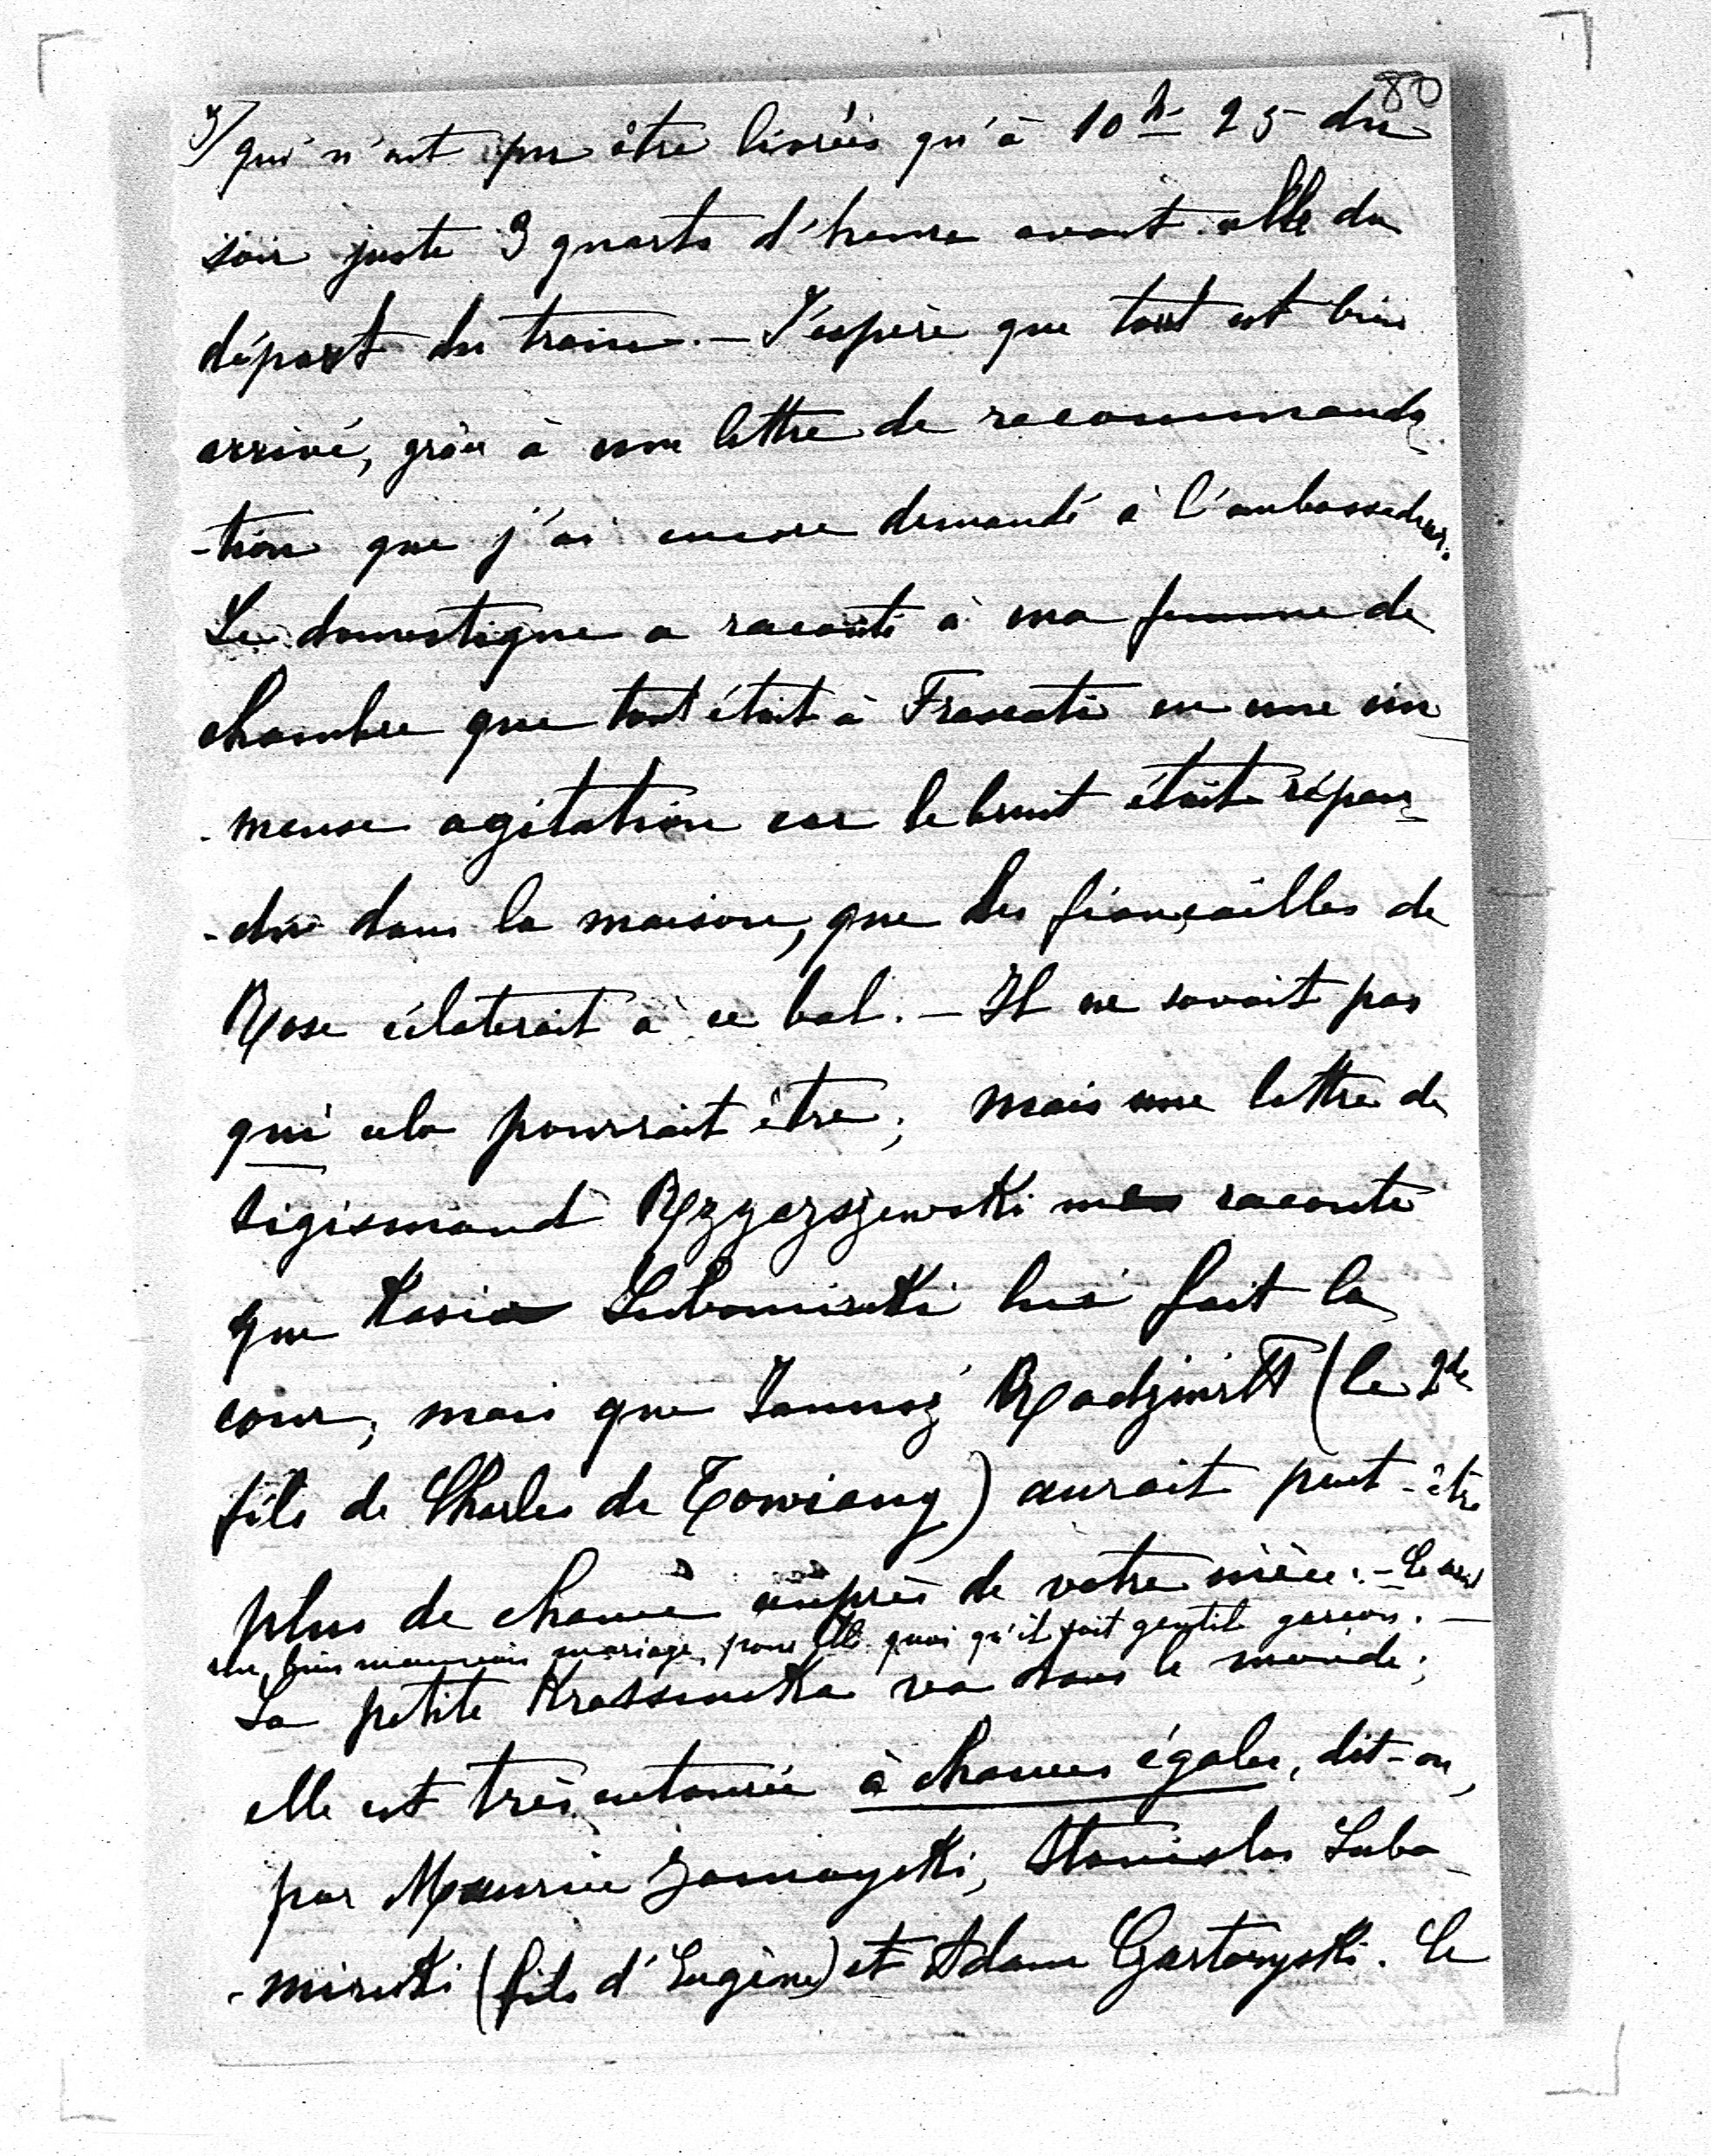 80
3/ qui n'ont pu être livrées qu'à 10 h 25 du
soir juste 3 quarts d'heure avant celle du
départ du train. — J'espère que tout est bien
arrivé, grâce à une lettre de recommanda-
-tion que j'ai encore demandé à l'ambassadeur.
Le domestique a raconté à ma femme de
chambre que tout était à Frascati en une im-
-mense agitation car le bruit était répan-
-du dans la maison, que les fiançailles de
Rose éclaterait à ce bal. — Il ne savait pas
qui cela pourrait être; mais une lettre de
Sigismond Rzyszczewski me raconte
que Kasio Lubomirski lui fait la
cour, mais que Janusz Radziwiłł (le 2de
fils de Charles de Towiany) aurait peut-être
plus de chance auprès de votre nièce. — Ce serait
un bien mauvais mariage pour elle quoi qu'il soit gentil garçon. —
La petite Krassinska va dans le monde;
elle est très entourée à chances égales, dit-on,
par Maurice Zamoyski, Stanislas Lubo-
-mirski (fils d'Eugène) et Adam Czartoryski. Le